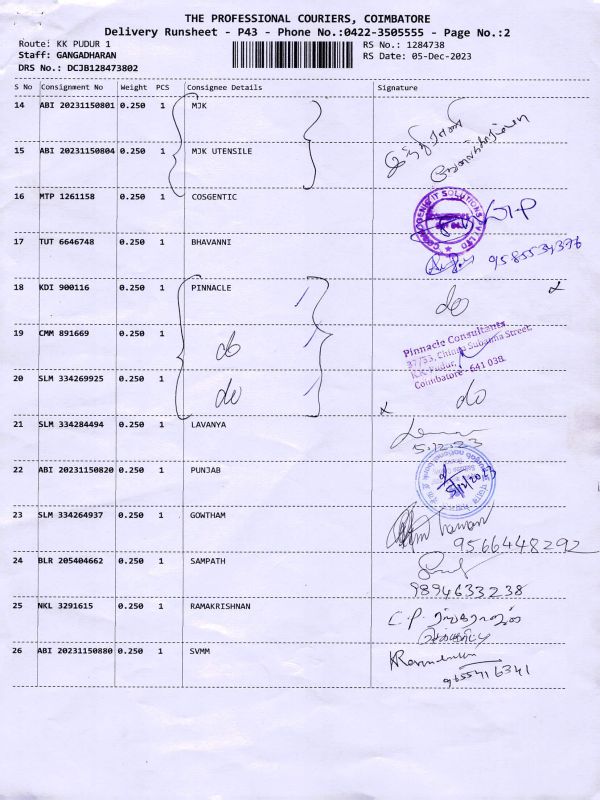 THE PROFESSIONAL COURIERS, COIMBATORE
Delivery Runsheet - P43 - Phone No.:0422-3505555 - Page No.:2
Route: KK PUDUR 1 RS No.: 1284738
Staff: GANGADHARAN RS Date: 05-Dec-2023
DRS No.: DCJB128473802
S No Consignment No Weight PCS Consignee Details Signature
14 ABI 20231150801 0.250 1 MJK
15 ABI 20231150804 0.250 1 MJK UTENSILE
16 MTP 1261158 0.250 1 COSGENTIC
17 TUT 6646748 0.250 1 BHAVANNI
9585534376
18 KDI 900116 0.250 1 PINNACLE do
19 CMM 891669 0.250 1 do
Pinnacle Consultants
37/33, Chinna Subanna Street,
K.K. Pudur,
Coimbatore - 641 038.
20 SLM 334269925 0.250 1 do do
21 SLM 334284494 0.250 1 LAVANYA
5.12.23
22 ABI 20231150820 0.250 1 PUNJAB
5/12/2023
23 SLM 334264937 0.250 1 GOWTHAM
9566448292
24 BLR 205404662 0.250 1 SAMPATH
9894633238
25 NKL 3291615 0.250 1 RAMAKRISHNAN
C.P.
26 ABI 20231150880 0.250 1 SVMM
9655416341